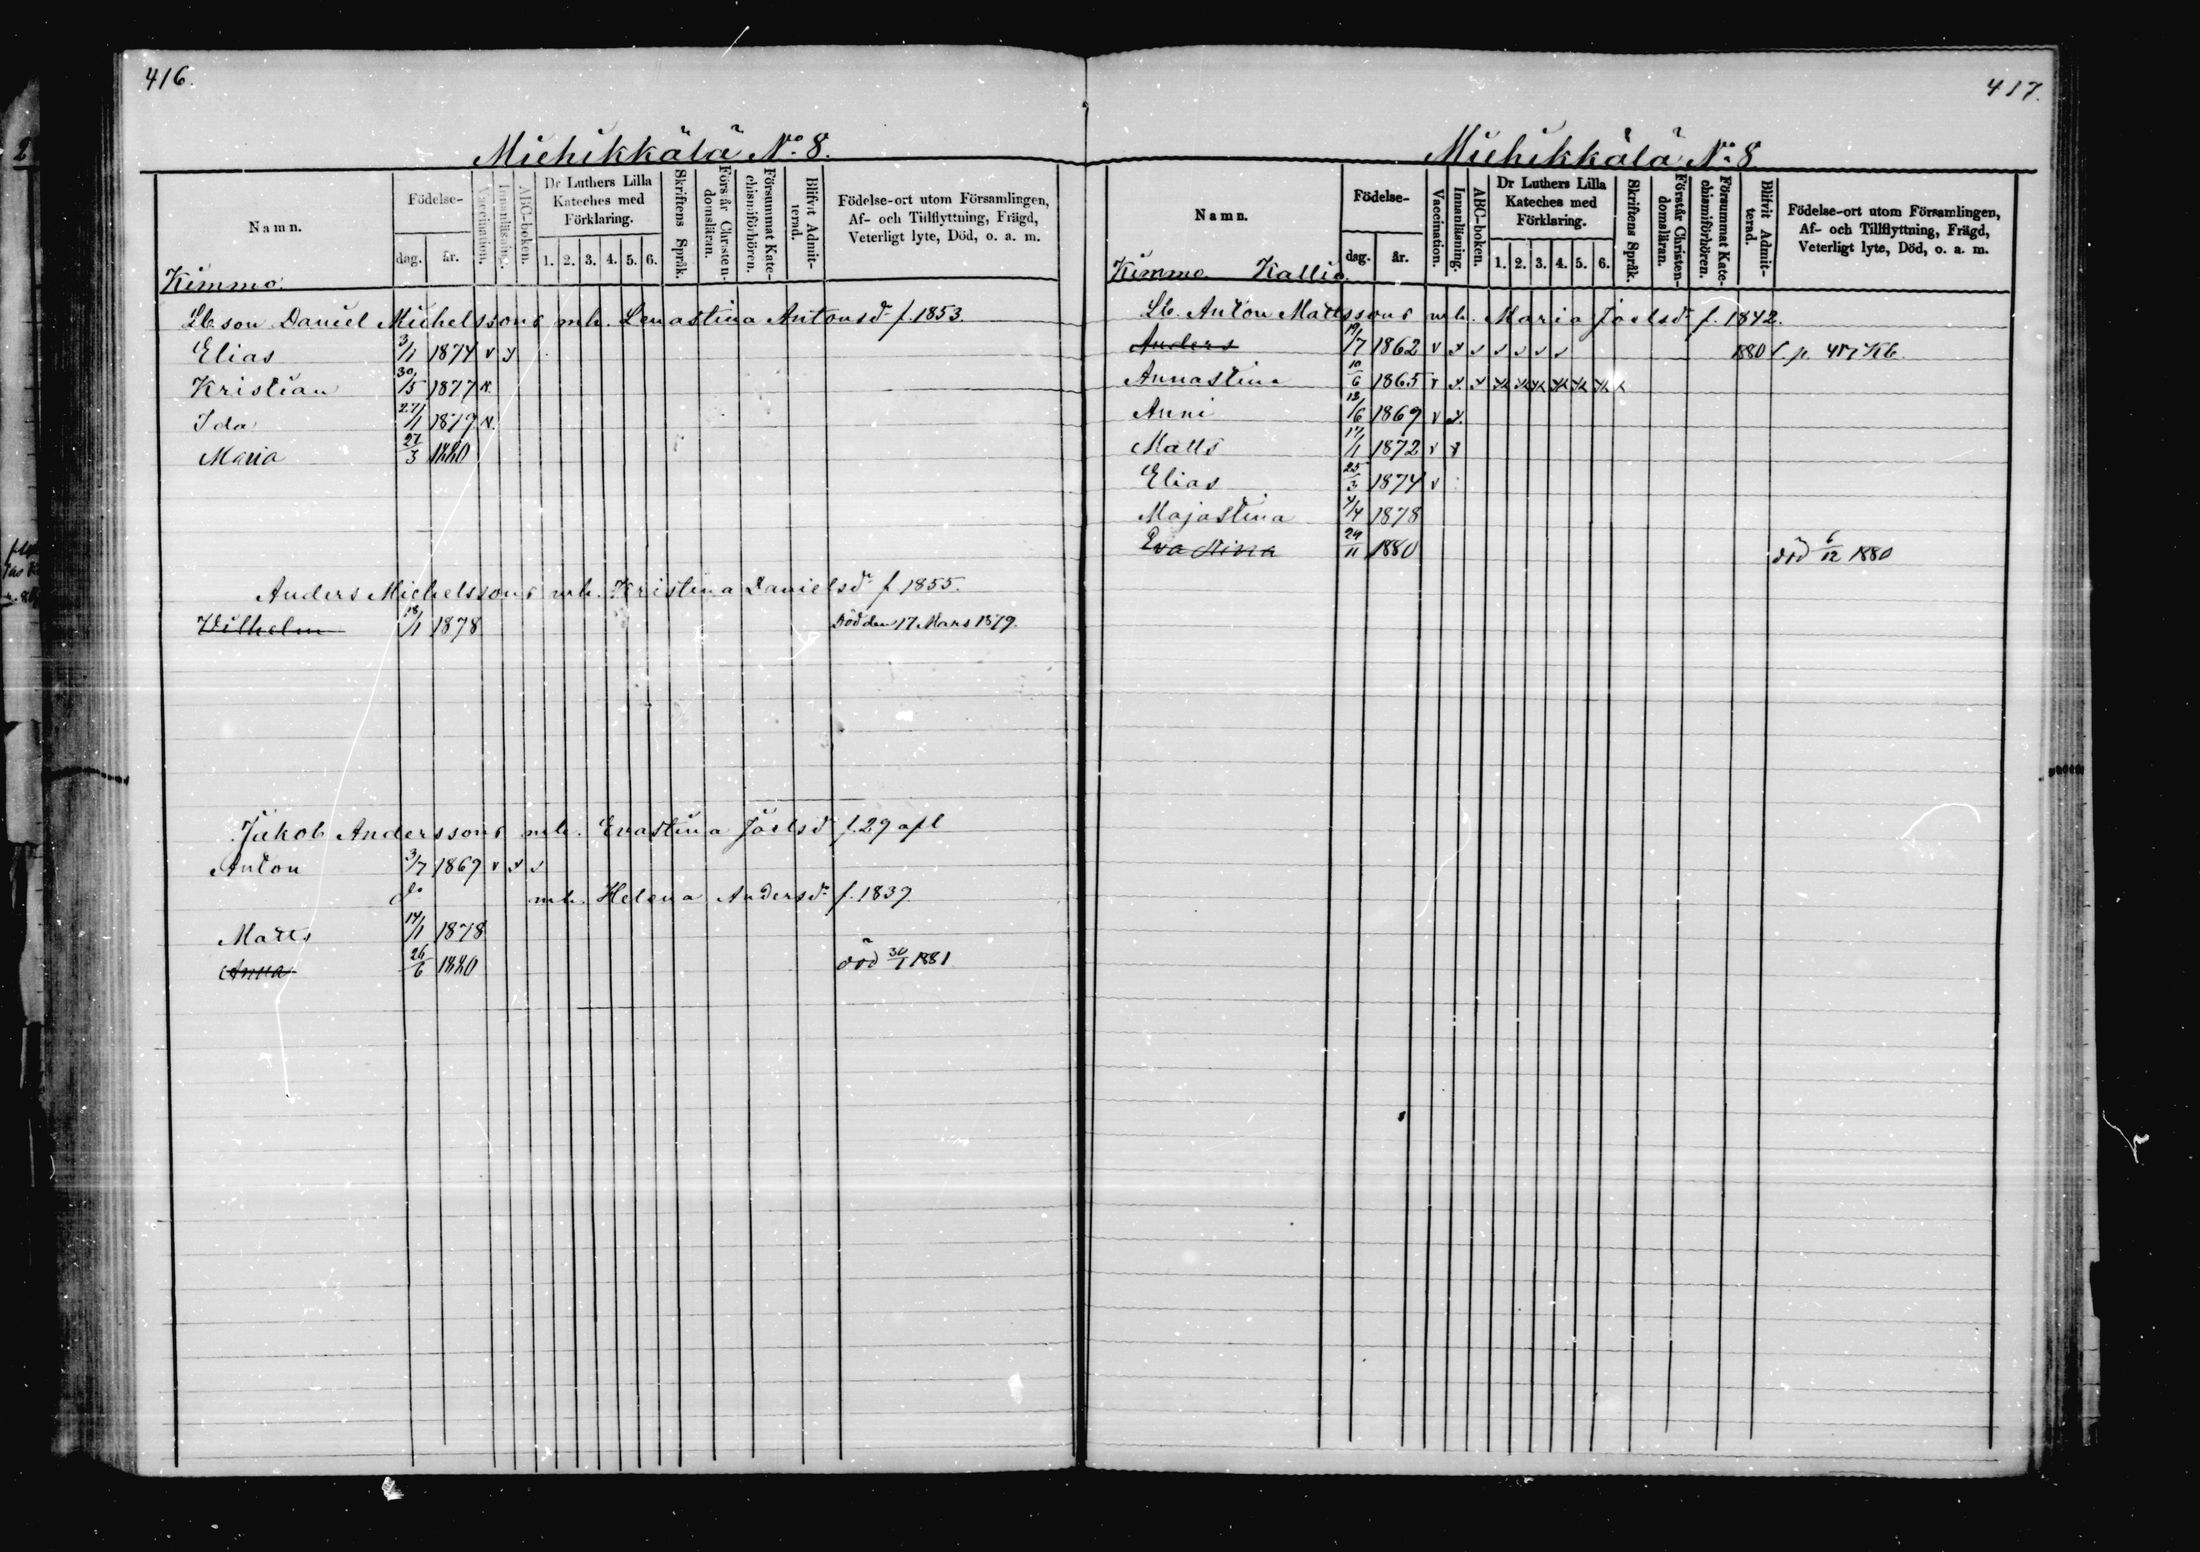 416.
Miehikkälä No 8.
Namn.
Födelse-
dag.
år.
Vaccination.
Innanläsning.
ABC-boken.
Dr Luthers Lilla
Kateches med
Förklaring.
1. 2. 3. 4. 5. 6.
Skriftens Språk.
Förstår Christen-
domsläran.
Försummat Kate-
chismiförhören.
Blifvit Admit-
terad.
Födelse-ort utom Församlingen,
Af- och Tillflyttning, Frägd,
Veterligt lyte, Död, o. a. m.
Kimmo.
Lb son Daniel Michelssons mh. Lenastina Antonsdr f. 1853.
Elias 3/1 1874 v
Kristian 30/5 1877 v.
Ida 27/1 1879 v.
Maria 27/3 1880
Anders Michelssons mh. Kristina Danielsdr f. 1855.
Wilhelm 18/1 1878 Död den 17 Mars 1879.
Jakob Anderssons mh. Evastina Joelsd f. 29 apl
Anton 3/7 1869 v
do mh. Helena Andersdr f. 1839.
Matts 14/1 1878
Anna 26/6 1880 död 30/1 1881
417.
Miehikkälä No 8
Namn.
Födelse-
dag.
år.
Vaccination.
Innanläsning.
ABC-boken.
Dr Luthers Lilla
Kateches med
Förklaring.
1. 2. 3. 4. 5. 6.
Skriftens Språk.
Förstår Christen-
domsläran.
Försummat Kate-
chismiförhören.
Blifvit Admit-
terad.
Födelse-ort utom Församlingen,
Af- och Tillflyttning, Frägd,
Veterligt lyte, Död, o. a. m.
Kimmo Kallio.
Lb. Anton Mattssons mh. Maria Joelsdr f. 1842.
Anders 19/7 1862 v 1880 f. p. Kb.
Annastina 10/6 1865 v
Anni 12/6 1869 v
Matts 17/1 1872 v
Elias 25/3 1874 v
Majastina 4/4 1878
Eva Stina 29/11 1880 död 6/12 1880